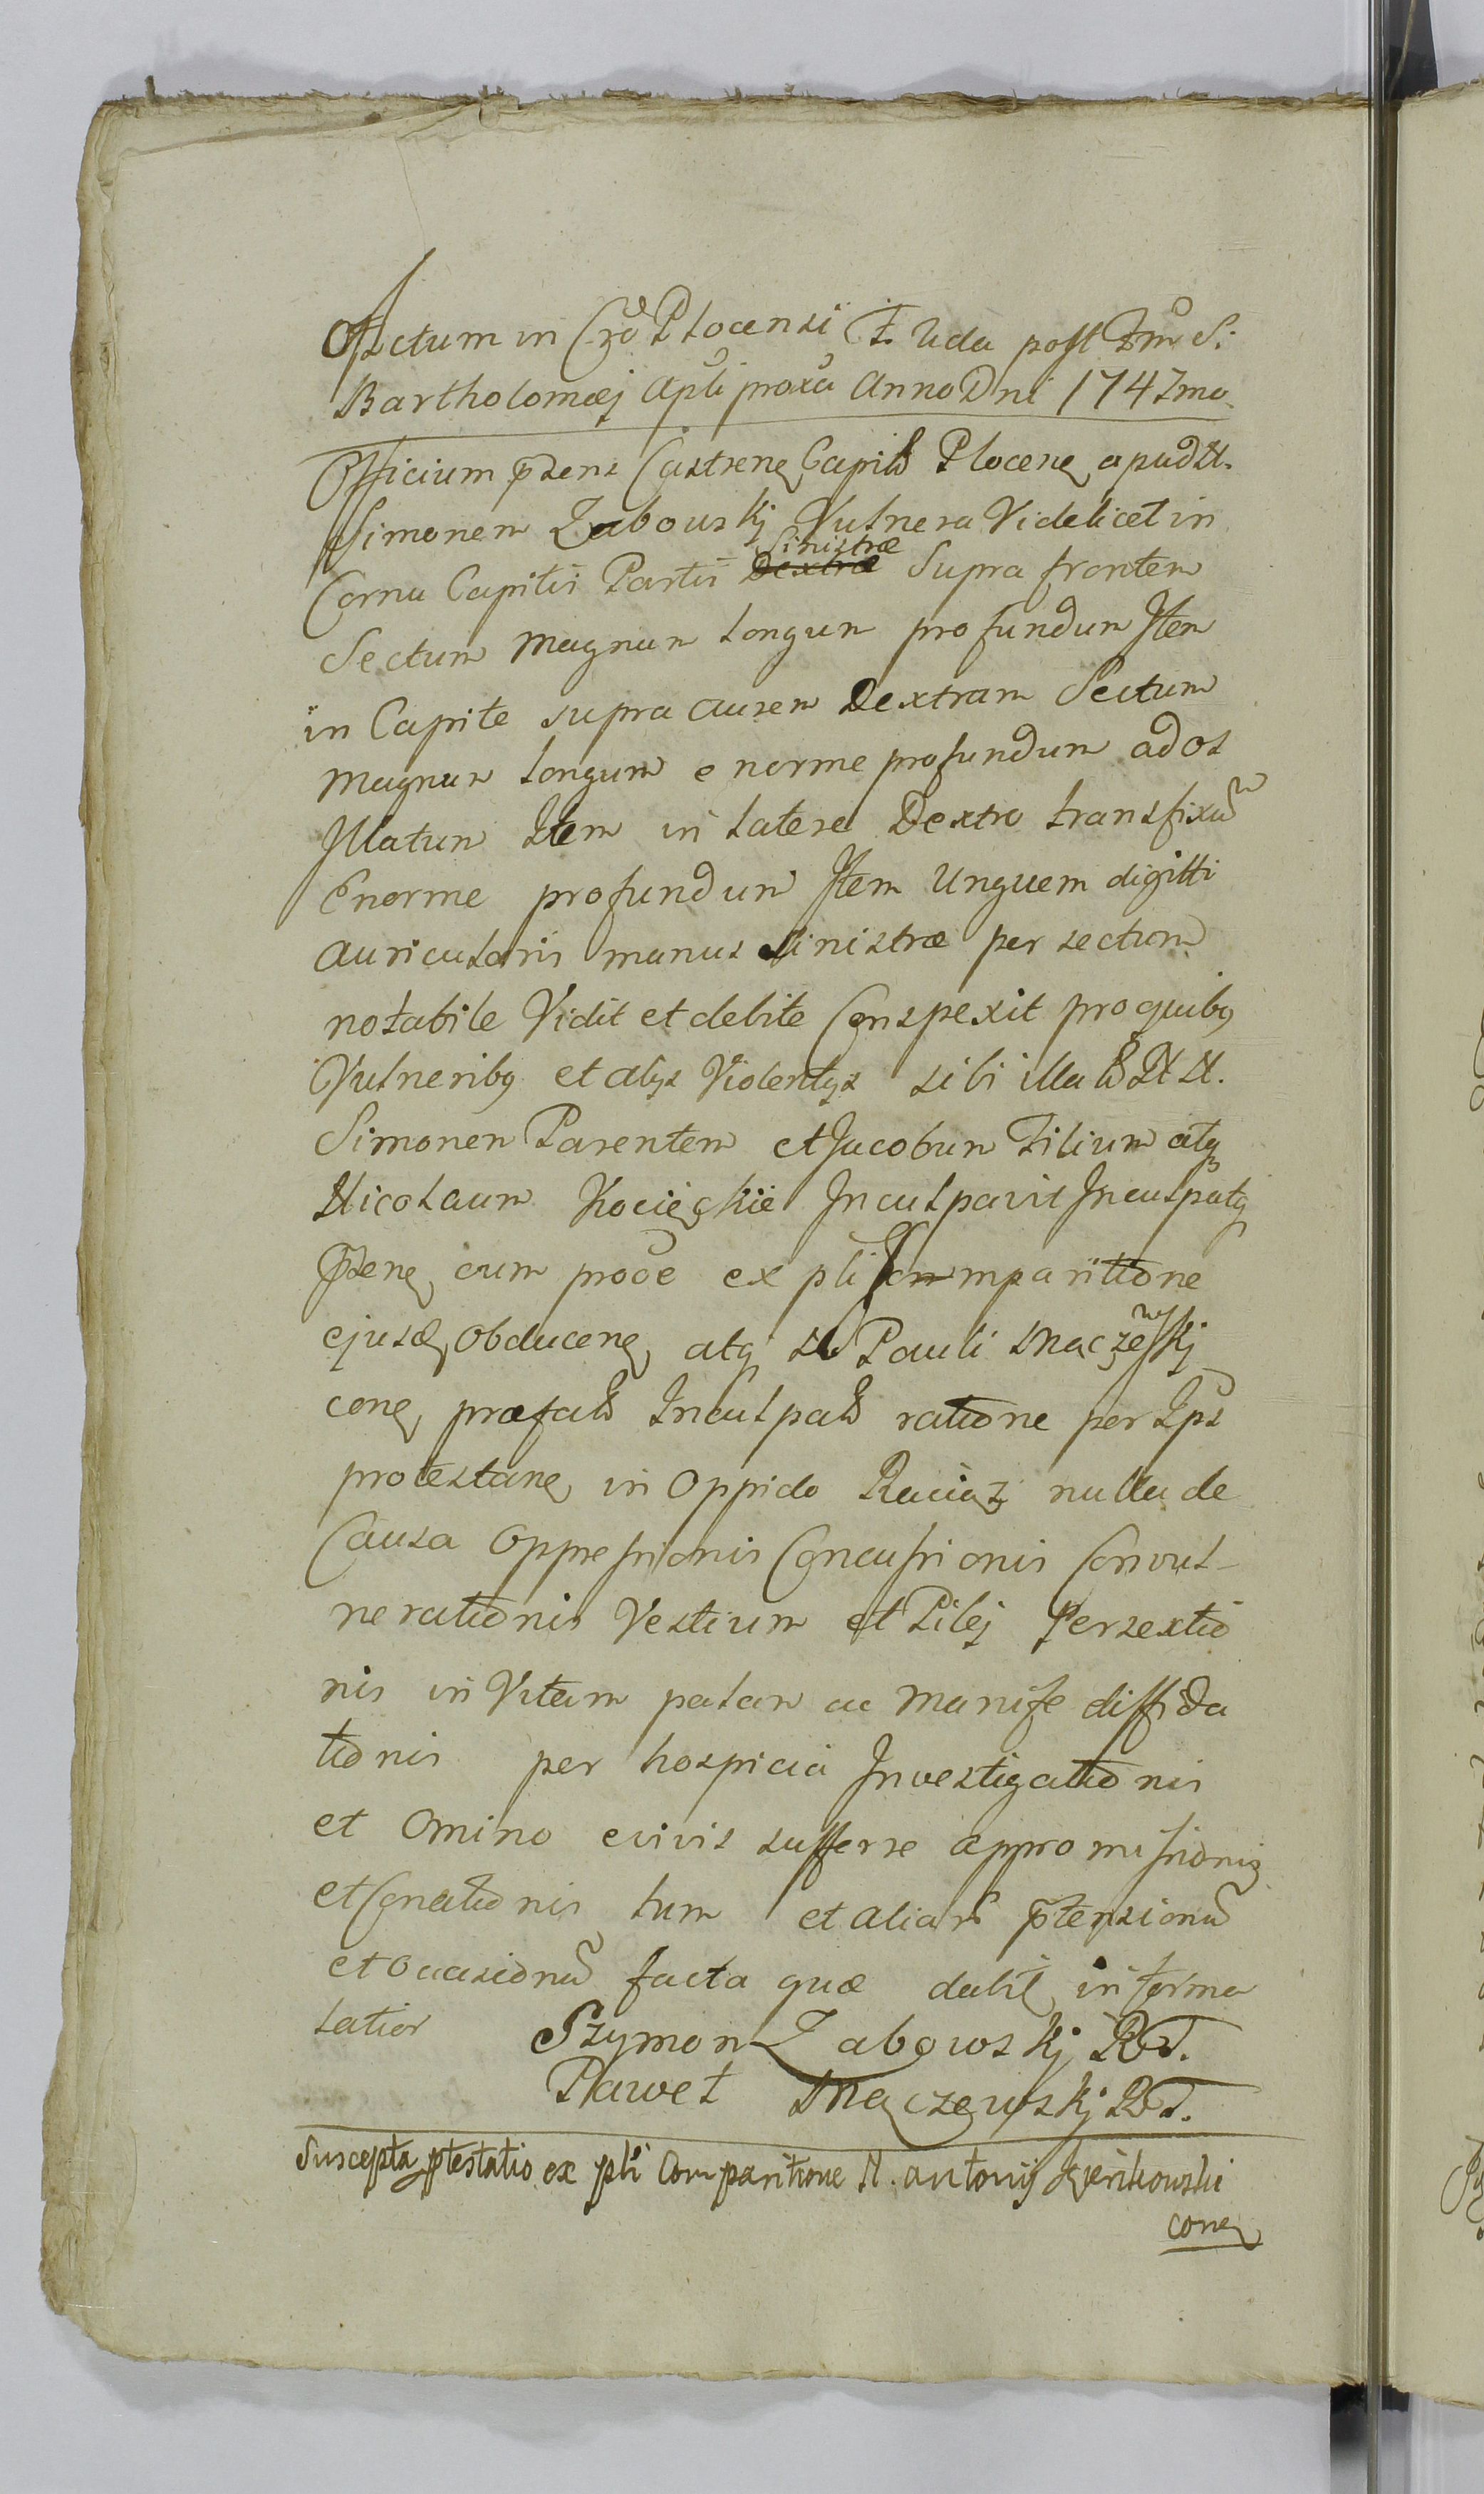 Actum in Cro Plocensi F. IIda post Fm S:
Bartholomæj Apli proxa Anno Dni 1747mo
Officium pñsens Castrens Capit Plocens apud N.
Simonem Zabowskj Vulnera Videlicet in
Cornu Capitis Partis Dextræ Sinistræ Supra frontem
Sectum magnum longum profundum Item
in Capite supra aurem Dextram Sectum
magnum longum enorme profundum ad os
Illatum Item in latere Dextro transfixũ
Enorme profundum Item Unguem digitti
auricularis manus Sinistræ per sectum
notabile Vidit et debite Conspexit pro quibq
Vulneribq et alijs Violentijs sibi illatis NN.
Simonem Parentem et Jacobum Filium atq
Nicolaum Kocięckie Inculpavit Inculpatq
pñsens cum proce ex pli Comparitione
ejusd obducens atq N Pauli Mączewskj
cons præfat Inculpat ratione per Ips
protestans in Oppido Raciąz nulla de
Causa Oppressionis Concussionis Convul-
nerationis Vestium et Pilej Persextio
nis in Vitam palam ac manife diffida
tionis per hospicia Investigationis
et Omino e vivis sufferre appromissionis
et Conationis tum et aliar ptensionũ
et occasionũ facta quæ dabit in forma
latior Szymon Zabowskj RT.
Paweł Mączewskj RT.
Suscepta ptestatio ex pli Comparitione N. Antonij
cons